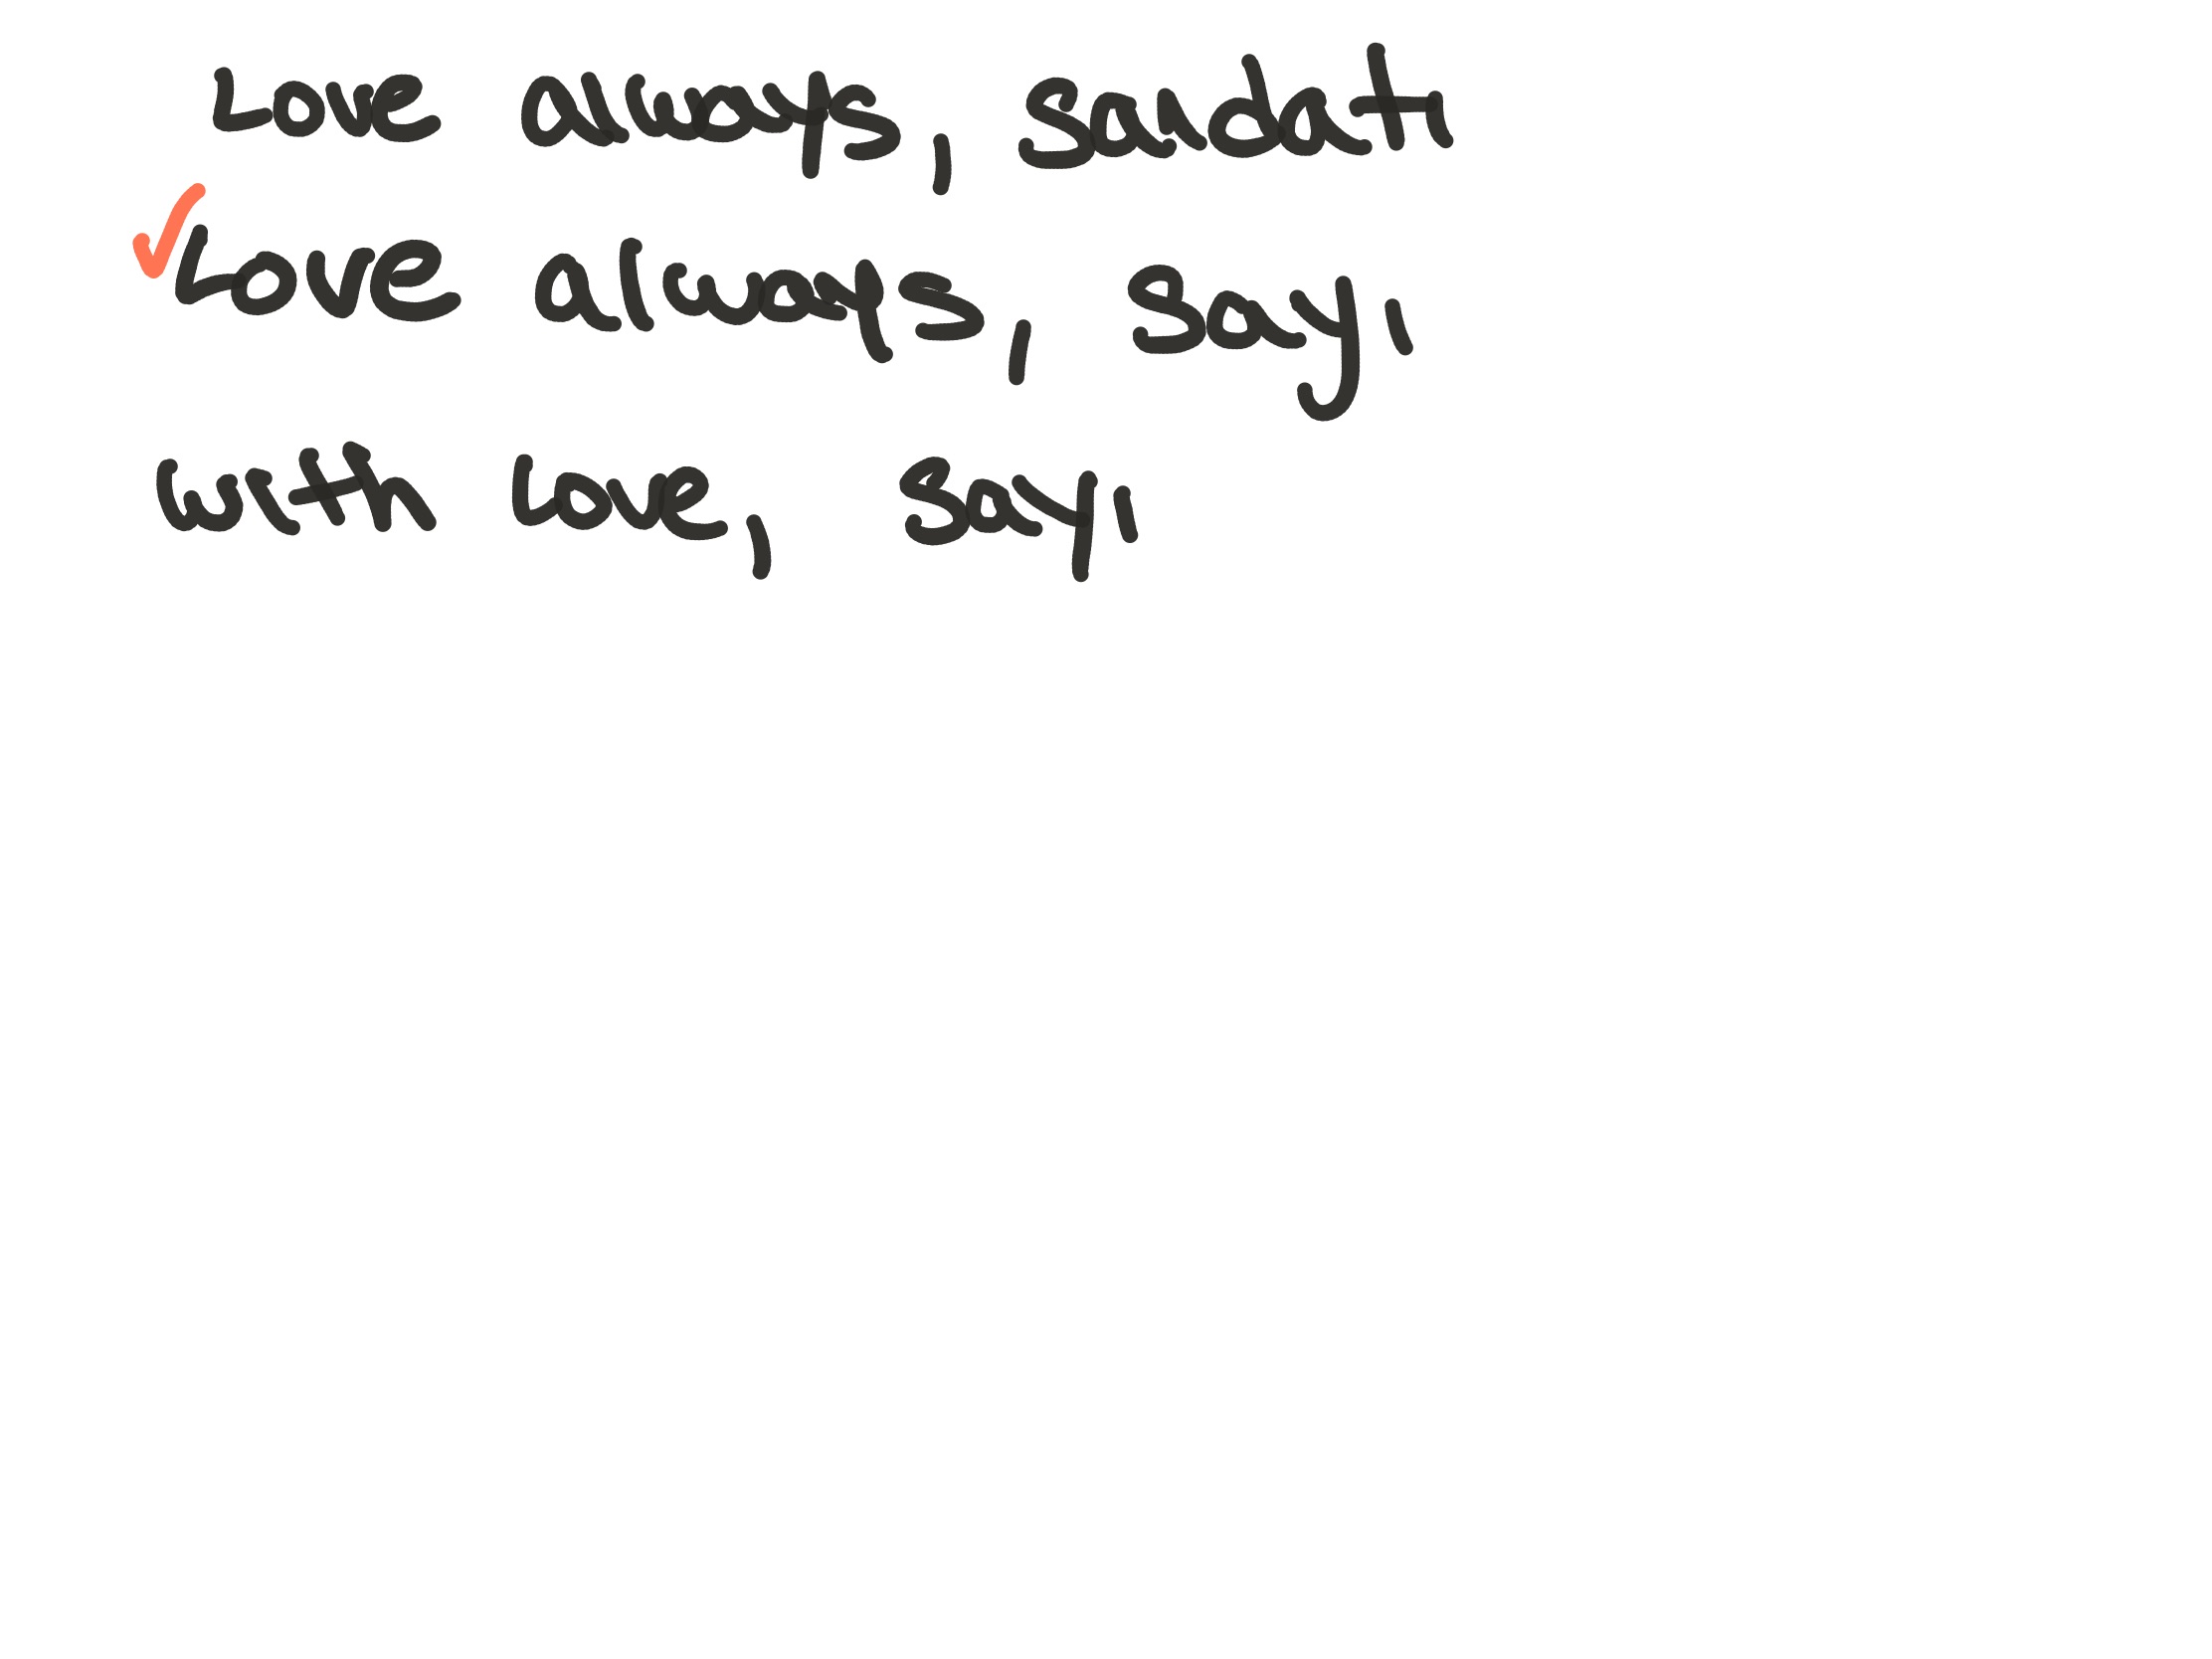 Love always, saudati
Love always, sayı
with love, sayı